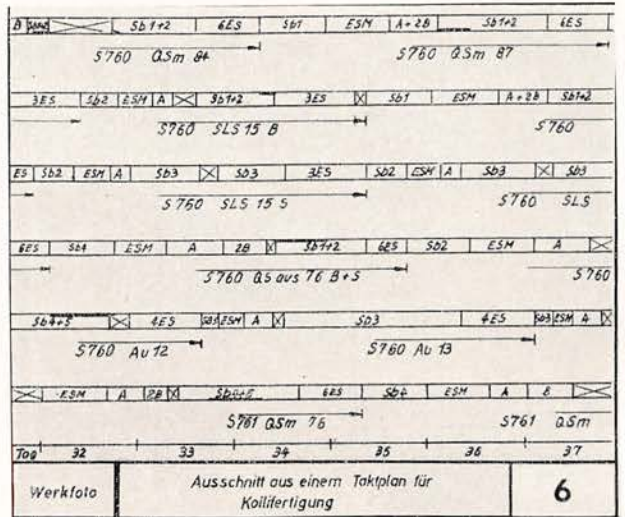 B Sb 1+2 6ES Sb1 ESM A+2B Sb1+2 6ES
S760 QSm 84 S760 QSm 87
3ES Sb2 ESM A Sb1+2 3ES Sb1 ESM A+2B Sb1+2
S760 SLS 15 B S760
ES Sb2 ESM A Sb3 Sb3 3ES Sb2 ESM A Sb3 Sb3
S760 SLS 15 S S760 SLS
6ES Sb4 ESM A 2B Sb1+2 6ES Sb2 ESM A
S760 QS aus 76 B+S S760
Sb4+5 4ES Sb3 ESM A Sb3 4ES Sb3 ESM A
S760 Au 12 S760 Au 13
ESM A 2B 6ES Sb4 ESM A B
S761 QSm 76 S761 QSm
Tag 32 33 34 35 36 37
Werkfoto
Ausschnitt aus einem Taktplan für
Koilifertigung
6